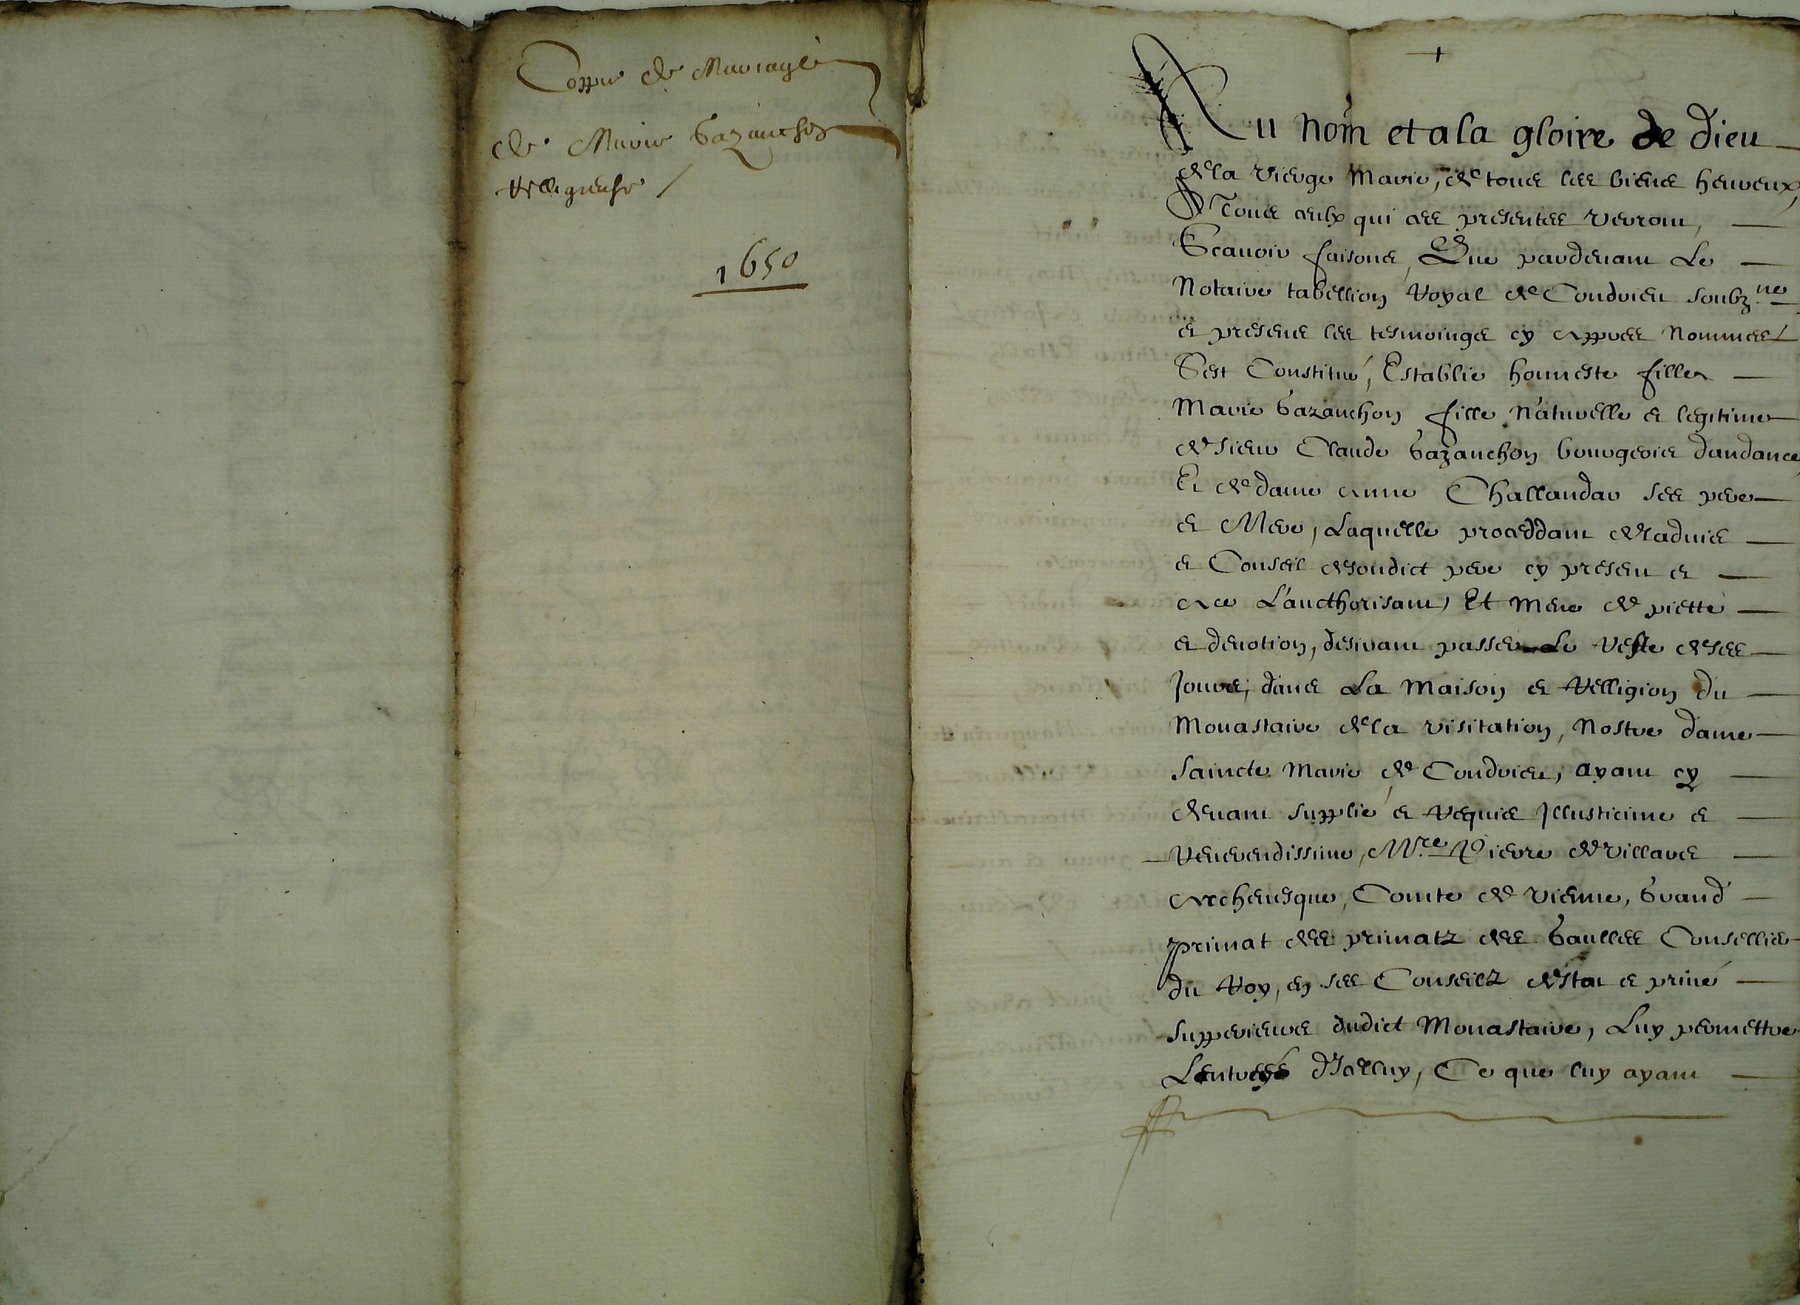 Coppie de Mariage
de Marie Gazanchon
Relligieuse /
1650
+
Au nom et a la gloire de dieu
de la vierge Marie, de tous les biens heureux,
A Tous ceulx qui ces presentes verront,
Scavoir faisons, Que pardevant Le
Notaire tabellion Royal de Condrieu soubz.né
et presens les tesmoings cy appres Nommes
Sest Constitué, Establie honneste fille
Marie Gazanchon fille Naturelle et legitime
de sieur Claude Gazanchon bourgeois dandance
Et de dame Anne Challandar ses pere
et Mere, Laquelle proceddant de ladvis
et Conseil de sondict pere cy present et
Ace L'aucthorisant, Et meue de piette
et devotion, desirant passer Le Reste de ses
Jours, dans La Maison et Relligion du
Monastaire de la visitation, Nostre dame
Saincte Marie de Condrieu, ayant cy
devant supplié et Requis Jllustricime et
Reverendissime, M.re Pierre de villars
Archevesque, Comte de vienne, Grand
primat des primatz des Gaulles Conseillier
du Roy, en ses Conseilz destat et privé
Supperieurs dudict Monastaire, Luy permettre
Lentrée dicelluy, Ce que luy ayant